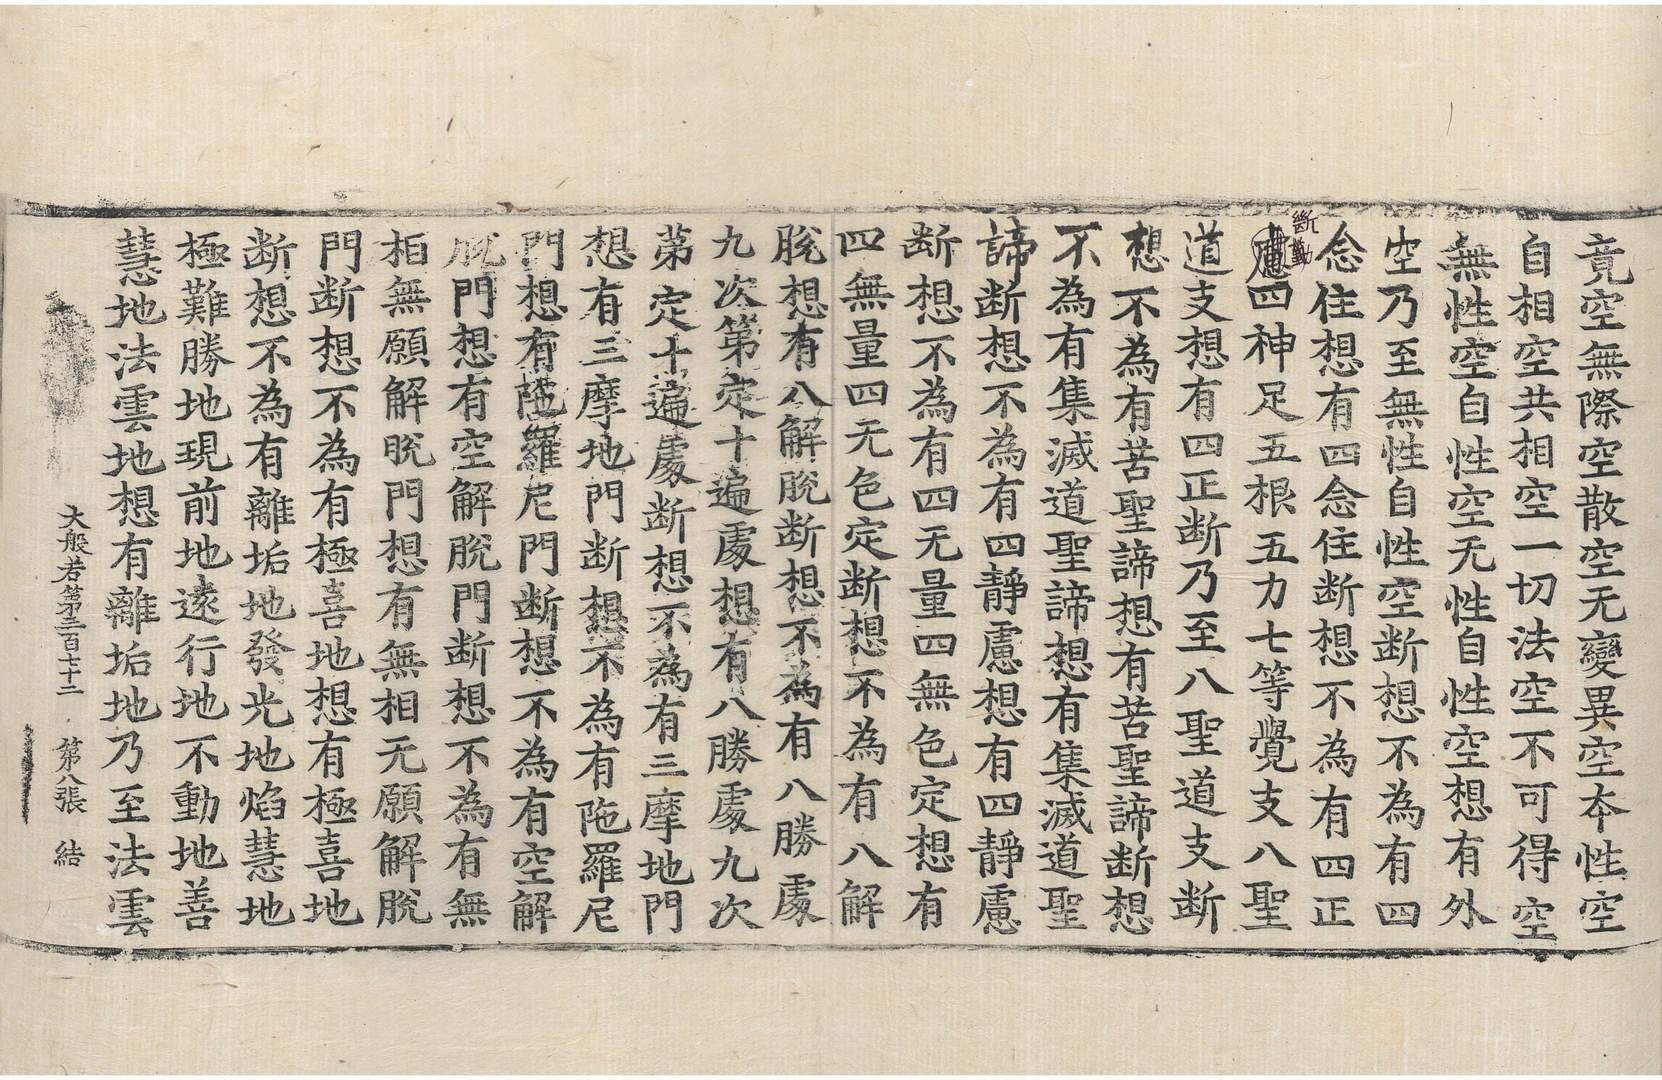 竟空無際空散空无變異空本性空
自相空共相空一切法空不可得空
無性空自性空无性自性空想有外
空乃至無性自性空断想不為有四
念住想有四念住断想不為有四正
断勤
四神足五根五力七等覺支八聖
道支想有四正断乃至八聖道支断
想不為有苦聖諦想有苦聖諦断想
不為有集滅道聖諦想有集滅道聖
諦断想不為有四靜慮想有四靜慮
断想不為有四无量四無色定想有
四無量四无色定断想不為有八解
脫想有八解脫断想不為有八勝處
九次第定十遍處想有八勝處九次
第定十遍處断想不為有三摩地門
想有三摩地門断想不為有陁羅尼
門想有陁羅尼門断想不為有空解
脫門想有空解脫門断想不為有無
相無願解脫門想有無相无願解脫
門断想不為有極喜地想有極喜地
断想不為有離垢地發光地焰慧地
極難勝地現前地遠行地不動地善
慧地法雲地想有離垢地乃至法雲
大般若第三百七十二 第八張 結